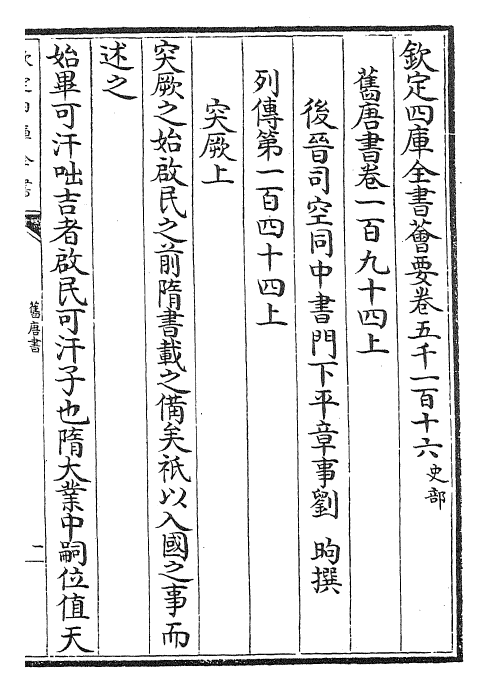 欽定四庫全書薈要卷五千一百十六史部
舊唐書卷一百九十四上
後晉司空同中書門下平章事劉 昫撰
列傳第一百四十四上
突厥上
突厥之始啟民之前隋書載之備矣祇以入國之事而
述之
始畢可汗咄吉者啟民可汗子也隋大業中嗣位值天
舊唐書
二